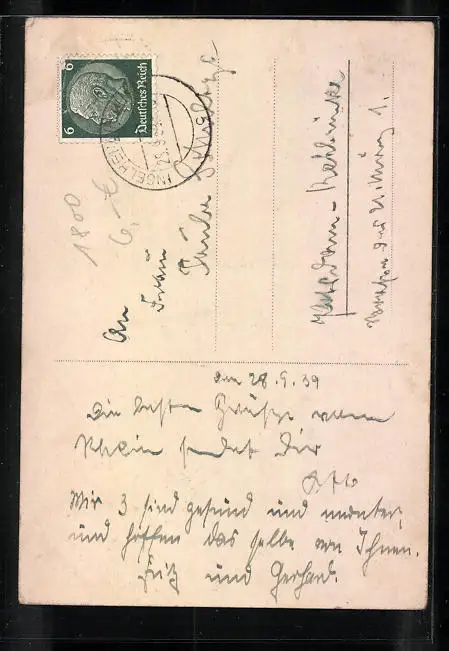 den 28.9.39
Die besten Grüße vom
Rhein sendet Dir
Otto
Wir 3 sind gesund und munter,
und hoffen das selbe von Ihnen.
Fritz und Gerhard.
An
Frau
Potsdam-Rehbrücke
1.
6 Deutsches Reich 6
INGELHEIM
1800
6,-€